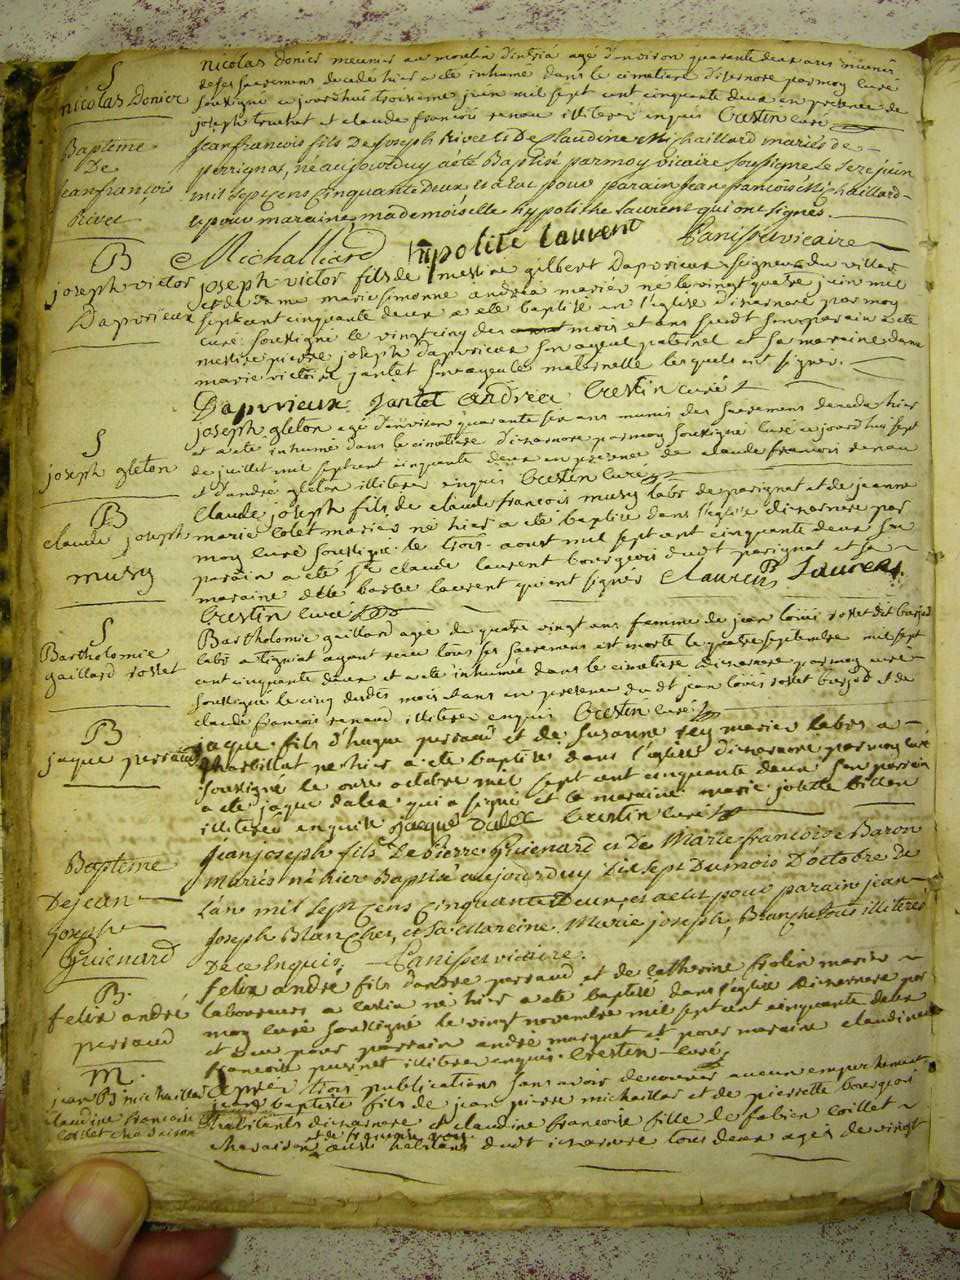 S
nicolas Donier
nicolas Donier meunier au moulin agé d'environ quarante deux ans munis
de ses sacremens decedé hier a ete inhumé dans le cimetiere d'isernore par moy curé
soussigné ce jourd'hui troisieme juin mil sept cent cinquante deux en presence de
joseph truchat et claude francois renou illiteres enquis Crestin curé
Baptême
De
jean françois
Rivet
jean francois fils De joseph Rivet et De Claudine Michaillard mariés de
perrignas, né aujourduy a eté Baptisé par moy vicaire soussigné le seze juin
mil sept cens Cinquante Deux et a eu pour parain jean francois Michaillard
et pour maraine mademoiselle hypolithe laurent qui ont signés.
Michalliard hipolite laurent Panisset vicaire
B
joseph victor
Daprvieux
joseph victor fils de messire gilbert Daprvieux seigneur du villar
et de dame marie simonne andréa mariés né le vingt quatre juin mil
sept cent cinquante deux a eté baptisé en l'eglise d'isernore par moy
curé soussigné le vingt cinq des mois et an susdt son parain a eté
messire pierre joseph Daprvieux son ayeul paternel et sa maraine dame
marie victoire jantet son ayeule maternelle lesquels ont signez.
Daprvieux Jantet andréa Crestin curé
S
joseph gleton
joseph gleton agé d'environ quarante six ans munis des sacremens decedé hier
et a eté inhumé dans le cimetiere d'isernore par moy soussigné curé ce jourd'huy sept
de juillet mil sept cent cinquante deux en presence de claude francois renou
et d'andré gleton illiteres enquis Crestin curé
B
claude joseph
musy
Claude joseph fils de claude francois musy labr de perignat et de jeanne
marie colet mariés né hier a eté baptisé dans l'eglise d'isernore par
moy curé soussigné le trois aoust mil sept cent cinquante deux son
parain a eté sr claude laurent bourgeois dudt perignat et sa
maraine dlle barbe laurent qui ont signés Claurens B Laurens
Crestin curé
S
Bartholomie
gaillard rosset
Bartholomie gaillard agée de quatre vingt ans femme de jean louis rosset dit
labr a tigniat ayant receu tous ses sacremens est morte le quatre septembre mil sept
cent cinquante deux et a eté inhumée dans le cimetiere d'isernore par moy curé
soussigné le cinq desdts mois et an en presence dudt jean louis rosset et de
claude francois renaud illiteres enquis Crestin curé
B
jaque perraud
jaque fils d'hugue perraud et de suzanne rey mariés labrs a
charbillat né hier a eté baptisé dans l'eglise d'isernore par moy curé
soussigné le onze octobre mil sept cent cinquante deux son parain
a eté jaque dalex qui a signé et la maraine marie josette billon
illiterée enquise jacque Dalex Crestin curé
Baptême
De jean
joseph
Guienard
jean joseph fils De Pierre Guienard et De Marie francoise Baron
Mariés né hier Baptisé aujourduy Dix sept Du mois D'octobre De
L'an mil sept Cens Cinquante Deux, et a eu pour parain jean
joseph Blanchet, et sa Mareine Marie joseph Blanchet tous illiterés
De ce Enquis, Panisset vicaire.
B.
felix andré
perraud
felix andré fils d'andre perraud et de catherine frolin mariés
laboureurs a né hier a eté baptisé dans l'eglise d'isernore par
moy curé soussigné le vingt novembre mil sept cent cinquante deux
et a eu pour parrain andre marquet et pour maraine claudine
francoise illiteres enquis. Crestin curé
M.
jean Bt michaillat
claudine francoise
coillet chavaison
Apres trois publications sans avoir decouvert aucun empechement
jean baptiste fils de jean pierre michaillat et de pierrette bourgeois
habitants d'isernore et claudine francoise fille de fabien coillet
et de francoise
chavaison aussi habitans dudt isernore tous deux agés de vingt